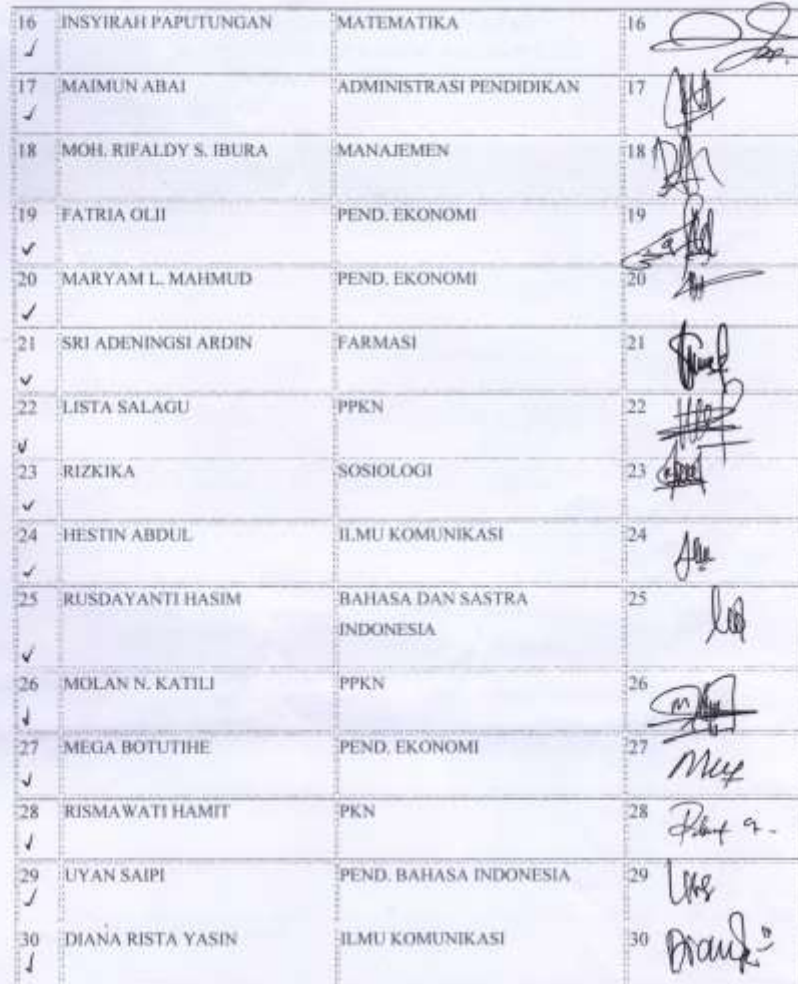 16 INSYIRAH PAPUTUNGAN MATEMATIKA 16
17 MAIMUN ABAI ADMINISTRASI PENDIDIKAN 17
18 MOH. RIFALDY S. IBURA MANAJEMEN 18
19 FATRIA OLII PEND. EKONOMI 19
20 MARYAM L. MAHMUD PEND. EKONOMI 20
21 SRI ADENINGSI ARDIN FARMASI 21
22 LISTA SALAGU PPKN 22
23 RIZKIKA SOSIOLOGI 23
24 HESTIN ABDUL ILMU KOMUNIKASI 24
25 RUSDAYANTI HASIM BAHASA DAN SASTRA 25
INDONESIA
26 MOLAN N. KATILI PPKN 26
27 MEGA BOTUTIHE PEND. EKONOMI 27
28 RISMAWATI HAMIT PKN 28
29 UYAN SAIPI PEND. BAHASA INDONESIA 29
30 DIANA RISTA YASIN ILMU KOMUNIKASI 30